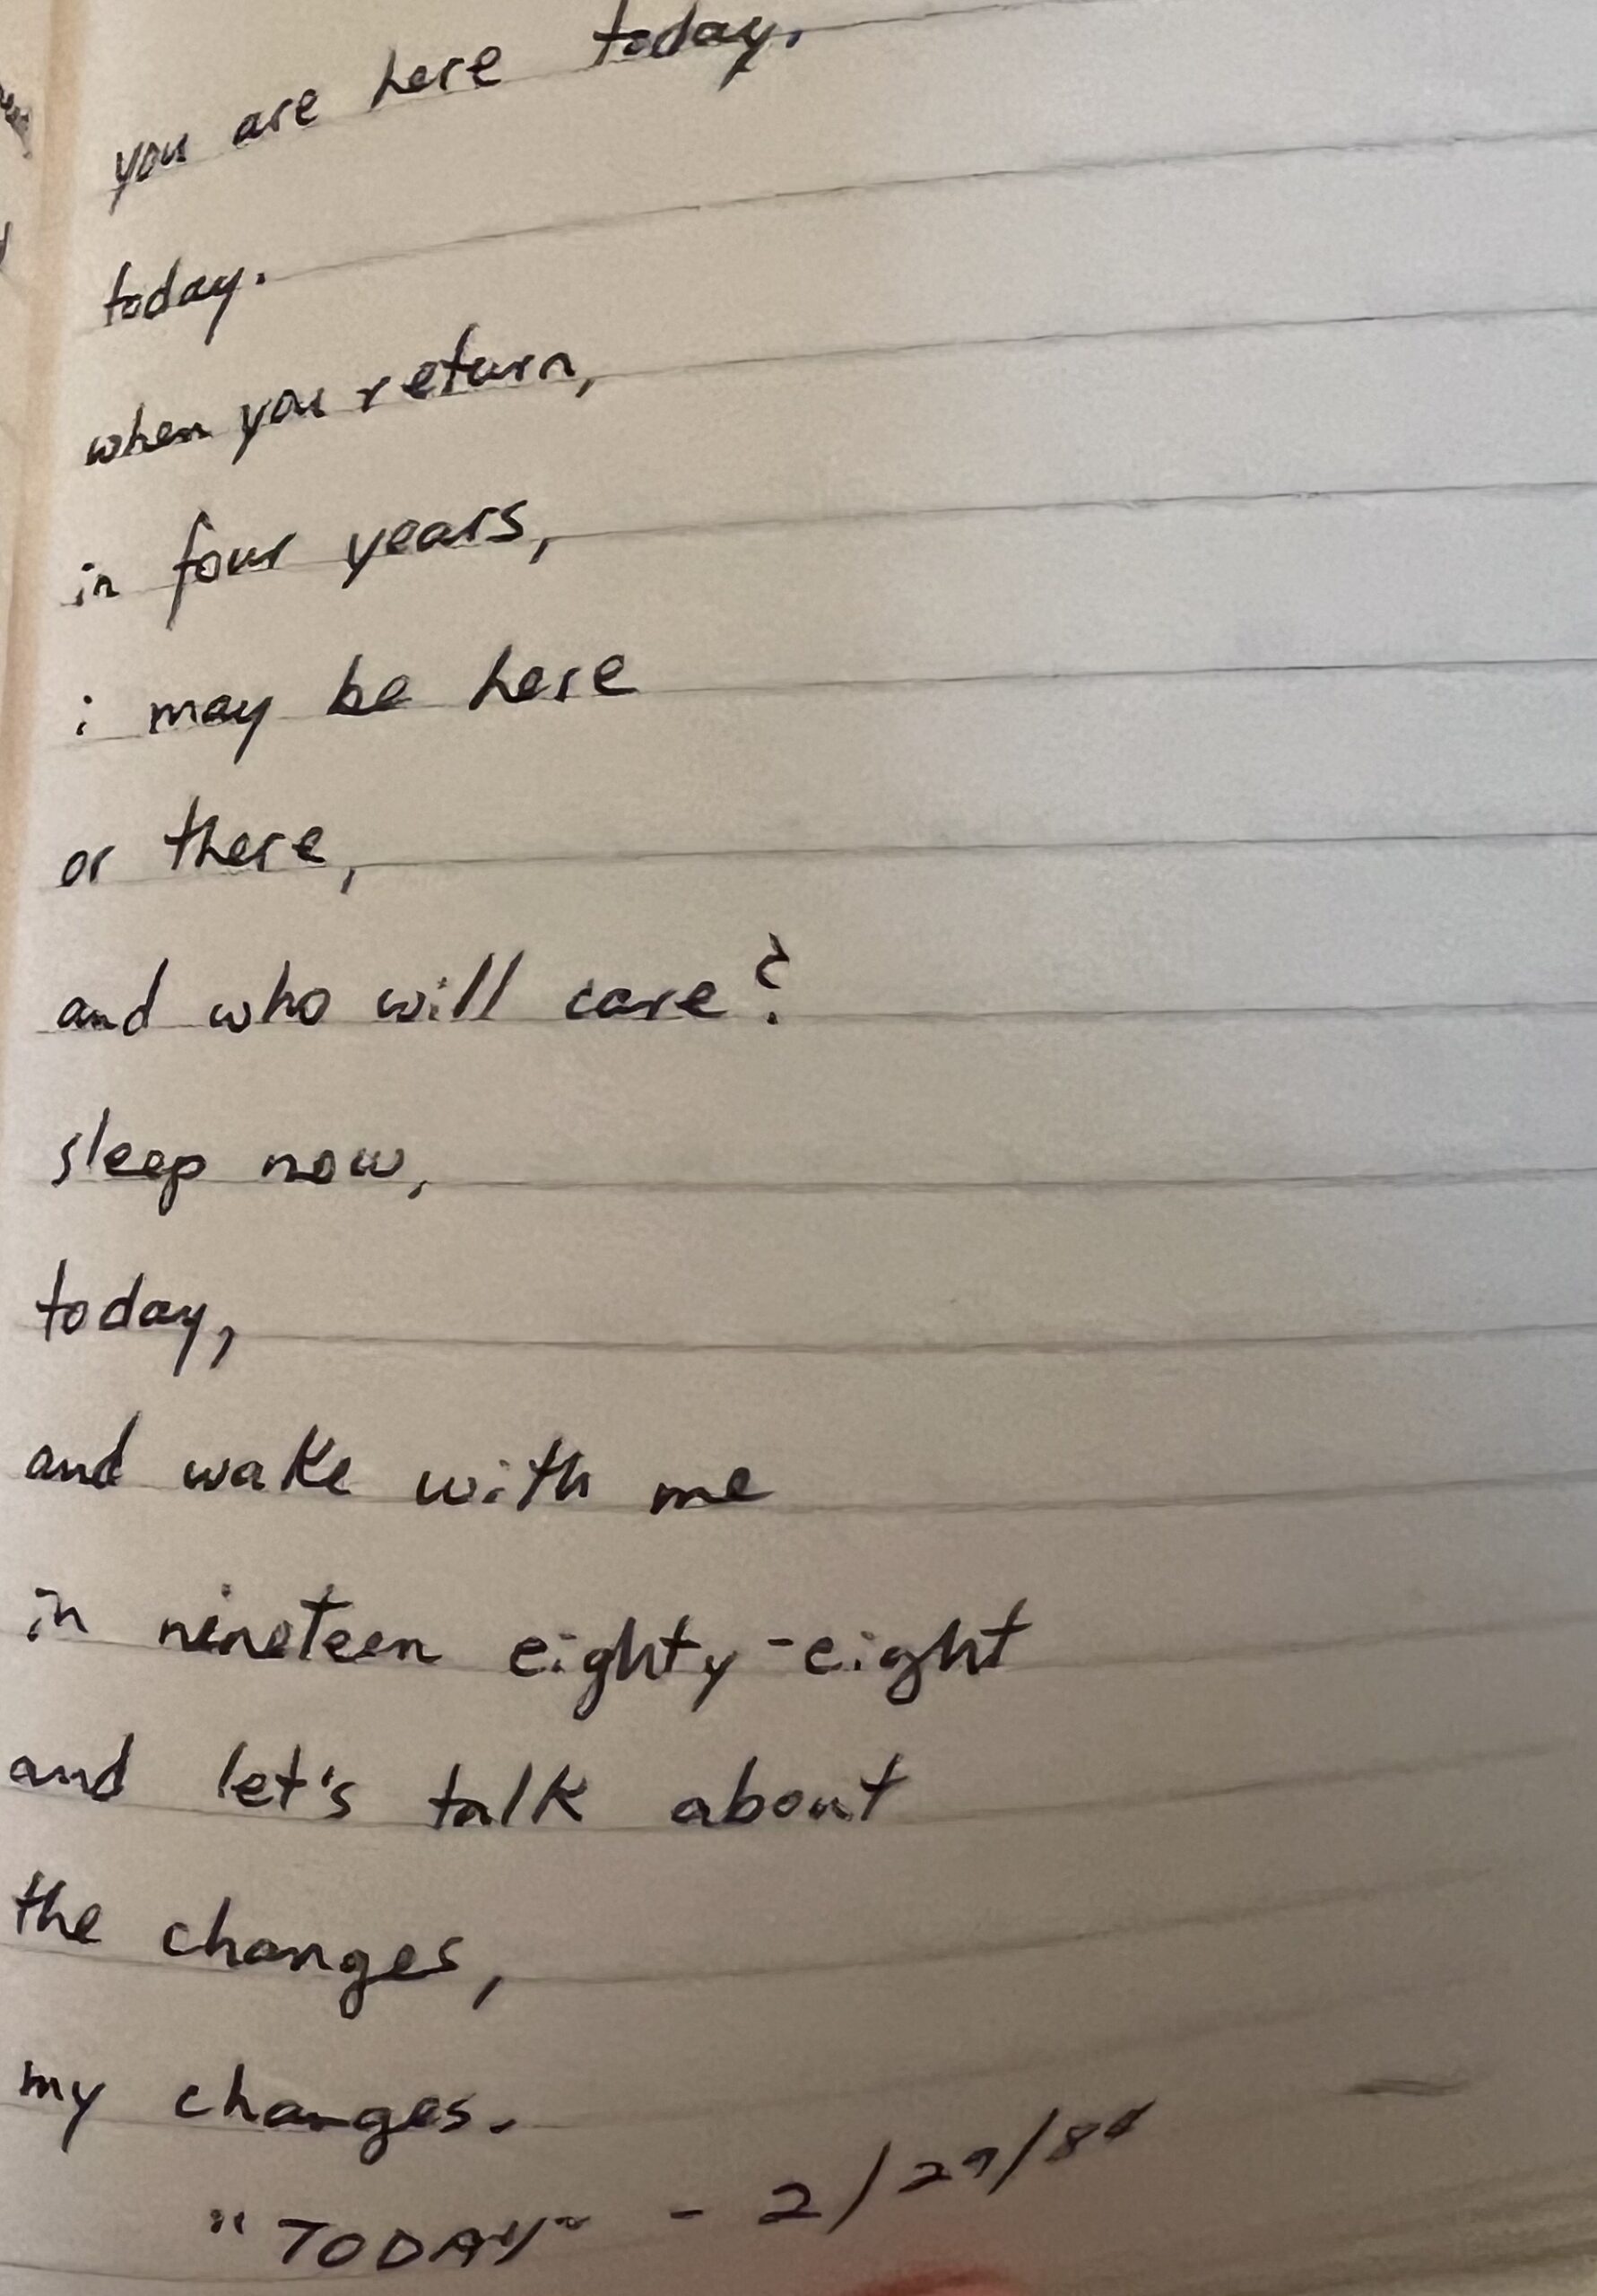 you are here today.
today.
when you return,
in four years,
i may be here
or there,
and who will care?
sleep now,
today,
and wake with me
in nineteen eighty-eight
and let's talk about
the changes,
my changes.
"TODAY" - 2/29/84